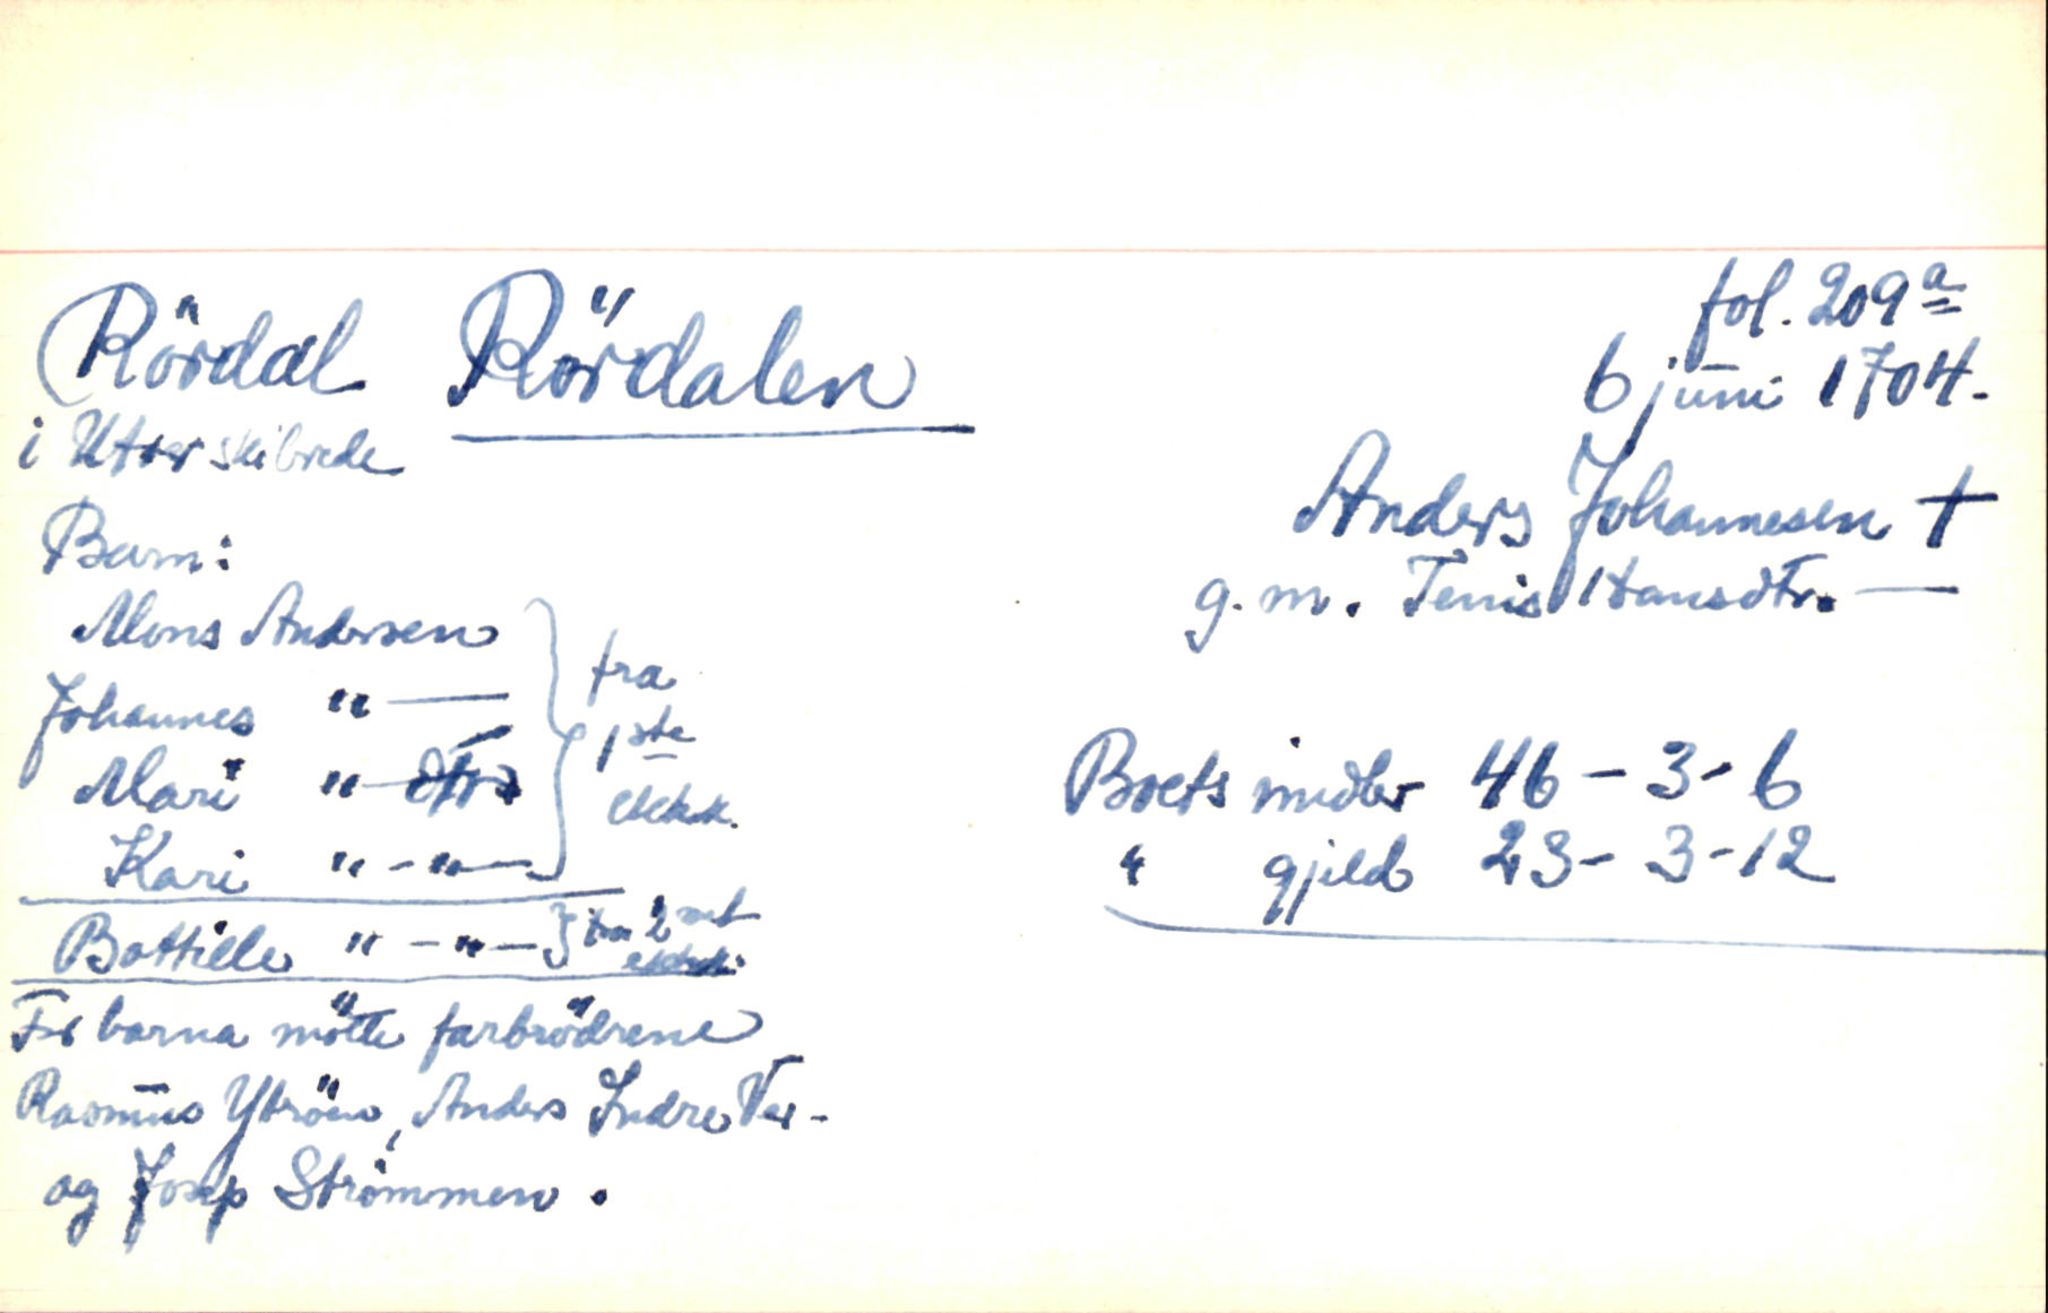 Rördal Rördalen
i Utvær skibrede
fol. 209 a
6 juni 1704.
Anders Johannesen †
g. m. Tenis Hansdtr. —
Barn:
Mons Andersen
Johannes " —
Mari " — dtr
Kari " - " —
} fra
1ste
ektsk.
Bottille " - " — } fra 2net
ektsk.
Boets midler 46 - 3 - 6
" gjeld 23 - 3 - 12
For barna mötte farbrödrene
Rasmus Ytröen, Anders Indre Vær -
og Josep Strömmen.